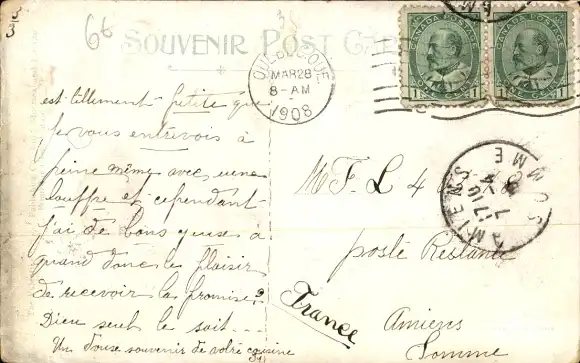 SOUVENIR POST CARD
66
3
CANADA POSTAGE
CANADA POSTAGE
1 1
1 1
QUEBEC·QUE
MAR 28
8 - AM
1908
AMIENS
SOMME
17 10
est tellement petite que
je vous entrevois à
peine même avec une
louffre et cependant
j'ai de bons yeux à
quand donc le plaisir
de recevoir la promise?
Dieu seul le sait...
Un doux souvenir de votre cousine
M F. L 4
poste Restante
Amiens
Somme
France